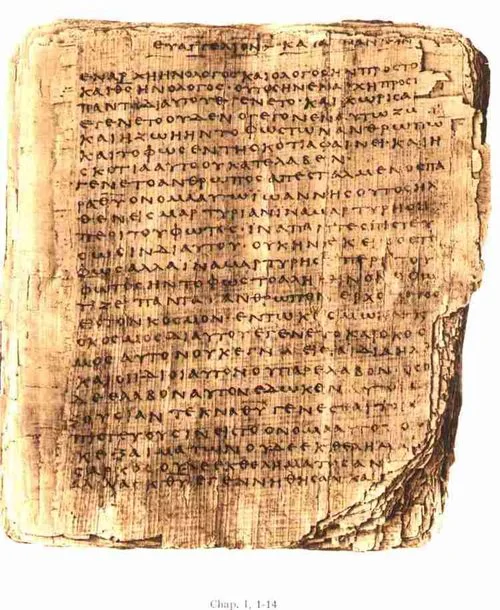 ΕΥΑΓΓΕΛΙΟΝ ΚΑΤΑ ΙΩΑΝΝΗΝ
ΕΝΑΡΧΗΗΝΟΛΟΓΟϹΚΑΙΟΛΟΓΟϹΗΝΠΡΟϹΤΟ
ΚΑΙΘϹΗΝΟΛΟΓΟϹ·ΟΥΤΟϹΗΝΕΝΑΡΧΗΠΡΟϹ
ΠΑΝΤΑΔΙΑΥΤΟΥΕΓΕΝΕΤΟ·ΚΑΙΧΩΡΙϹΑ
ΕΓΕΝΕΤΟΟΥΔΕΝΟΓΕΓΟΝΕΝΕΝΑΥΤΩΖΩ
ΚΑΙΗΖΩΗΗΝΤΟΦΩϹΤΩΝΑΝΘΡΩΠΩ
ΚΑΙΤΟΦΩϹΕΝΤΗϹΚΟΤΙΑΦΑΙΝΕΙ·ΚΑΙΗ
ϹΚΟΤΙΑΑΥΤΟΟΥΚΑΤΕΛΑΒΕΝ·
ΓΕΝΕΤΟΑΝΘΡΩΠΟϹΑΠΕϹΤΑΛΜΕΝΟϹΠΑ
ΡΑΘΥΟΝΟΜΑΑΥΤΩΙΩΑΝΝΗϹΟΥΤΟϹΗΛ
ΘΕΝΕΙϹΜΑΡΤΥΡΙΑΝΙΝΑΜΑΡΤΥΡΗϹΗ
ΠΕΡΙΤΟΥΦΩΤΟϹ·ΙΝΑΠΑΝΤΕϹΠΙϹΤΕΥ
ϹΩϹΙΝΔΙΑΥΤΟΥ·ΟΥΚΗΝΕΚΕΙΝΟϹΤΟ
ΦΩϹΑΛΛΑΙΝΑΜΑΡΤΥΡΗϹΗΠΕΡΙΤΟΥ
ΦΩΤΟϹΗΝΤΟΦΩϹΤΟΑΛΗΘΙΝΟΝΟΦΩ
ΤΙΖΕΙΠΑΝΤΑΑΝΘΡΩΠΟΝΕΡΧΟΜΕΝΟΝ
ΕΙϹΤΟΝΚΟϹΜΟΝ·ΕΝΤΩΚΟϹΜΩΗΝ
ΟΚΟϹΜΟϹΔΙΑΥΤΟΥΕΓΕΝΕΤΟΚΑΙΟΚΟϹ
ΜΟϹΑΥΤΟΝΟΥΚΕΓΝΩΕΙϹΤΑΙΔΙΑΗΛ
ΚΑΙΟΙΙΔΙΟΙΑΥΤΟΝΟΥΠΑΡΕΛΑΒΟΝ·ΟϹΟΙ
ΔΕΕΛΑΒΟΝΑΥΤΟΝΕΔΩΚΕΝΑΥΤΟΙϹΕ
ΞΟΥϹΙΑΝΤΕΚΝΑΘΥΓΕΝΕϹΘΑΙΤΟΙϹ
ΠΙϹΤΕΥΟΥϹΙΝΕΙϹΤΟΟΝΟΜΑΑΥΤΟΥΟ
ΟΥΚΕΞΑΙΜΑΤΩΝΟΥΔΕΕΚΘΕΛΗΜΑ
ϹΑΡΚΟϹΟΥΔΕΕΚΘΕΛΗΜΑΤΟϹΑΝ
ΑΛΛΕΚΘΥΕΓΕΝΝΗΘΗϹΑΝΚΑΙ
Chap. I, 1-14